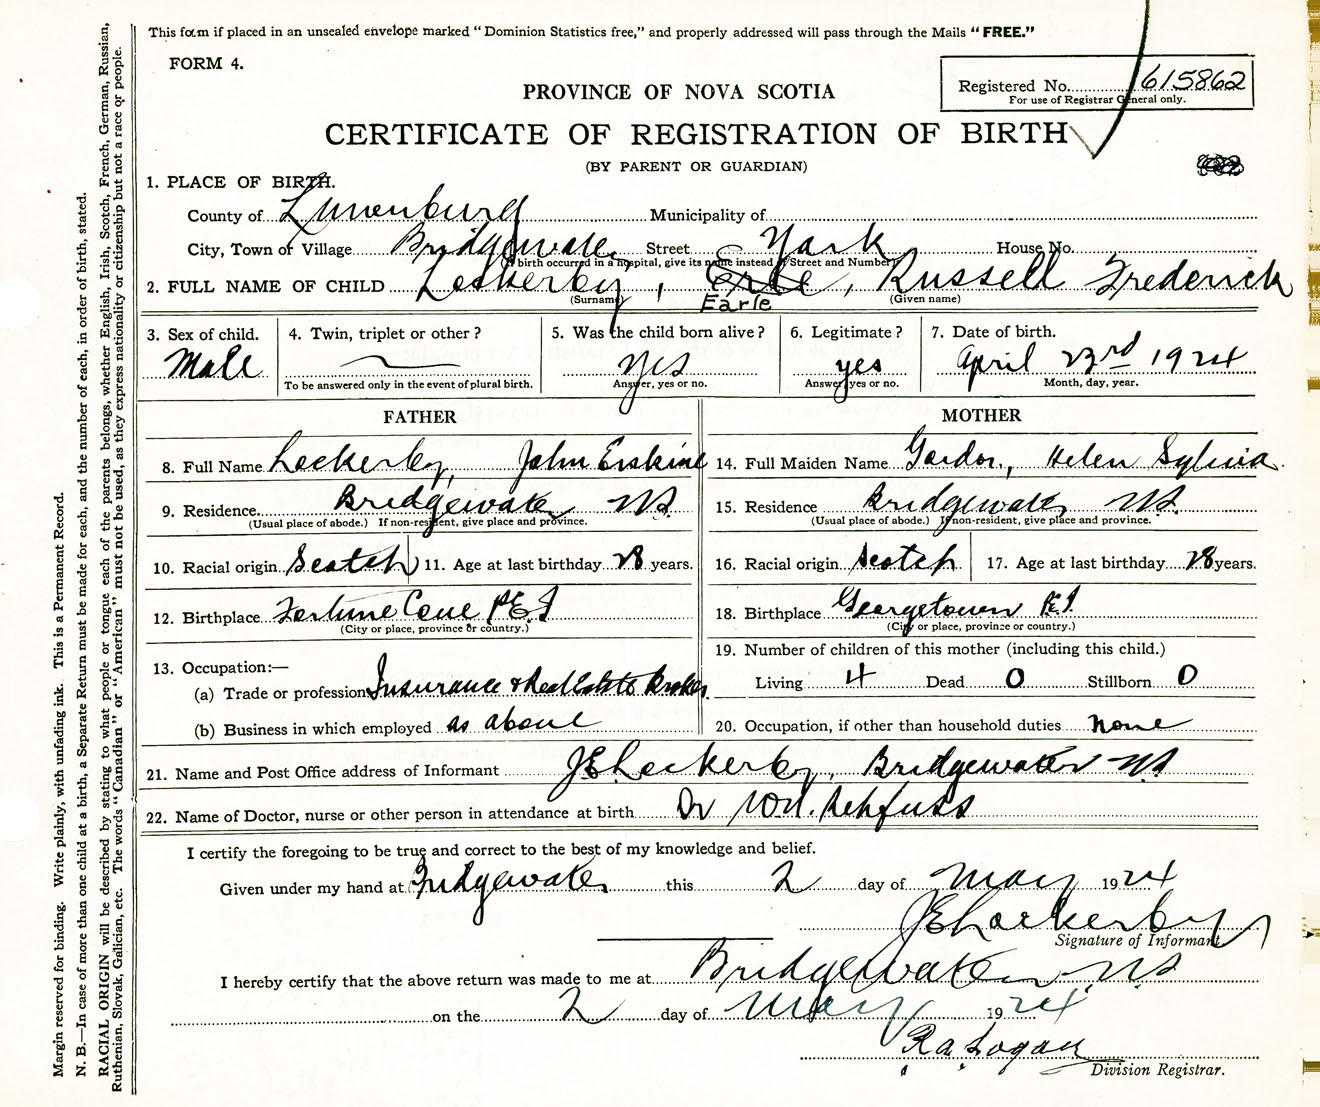 This form if placed in an unsealed envelope marked “Dominion Statistics free,” and properly addressed will pass through the Mails “FREE.”
FORM 4.
Registered No. 615862
For use of Registrar General only.
PROVINCE OF NOVA SCOTIA
CERTIFICATE OF REGISTRATION OF BIRTH
(BY PARENT OR GUARDIAN)
1. PLACE OF BIRTH.
County of Lunenburg Municipality of
City, Town or Village Bridgewater Street York House No.
(If birth occurred in a hospital, give its name instead of Street and Number)
2. FULL NAME OF CHILD Lockerby, Erle, Russell Frederick
(Surname) Earle (Given name)
3. Sex of child. 4. Twin, triplet or other? 5. Was the child born alive? 6. Legitimate? 7. Date of birth.
Male yes yes April 23rd 1924
To be answered only in the event of plural birth. Answer, yes or no. Answer, yes or no. Month, day, year.
FATHER MOTHER
8. Full Name Lockerby, John Erskine 14. Full Maiden Name Gordon, Helen Sylvia
9. Residence Bridgewater NS. 15. Residence Bridgewater NS.
(Usual place of abode.) If non-resident, give place and province. (Usual place of abode.) If non-resident, give place and province.
10. Racial origin Scotch 11. Age at last birthday 28 years. 16. Racial origin Scotch 17. Age at last birthday 28 years.
12. Birthplace Fortune Cove P.E.I 18. Birthplace Georgetown P.E.I.
(City or place, province or country.) (City or place, province or country.)
13. Occupation:— 19. Number of children of this mother (including this child.)
(a) Trade or profession Insurance & Real Estate Broker Living 4 Dead 0 Stillborn 0
(b) Business in which employed as above 20. Occupation, if other than household duties none
21. Name and Post Office address of Informant J E Lockerby, Bridgewater NS
22. Name of Doctor, nurse or other person in attendance at birth Dr Rehfuss
I certify the foregoing to be true and correct to the best of my knowledge and belief.
Given under my hand at Bridgewater this 2 day of May 1924
J E Lockerby
Signature of Informant
I hereby certify that the above return was made to me at Bridgewater NS
on the 2 day of May 1924
R a Logan
Division Registrar.
Margin reserved for binding. Write plainly, with unfading ink. This is a Permanent Record.
N. B.—In case of more than one child at a birth, a Separate Return must be made for each, and the number of each, in order of birth, stated.
RACIAL ORIGIN will be described by stating to what people or tongue each of the parents belongs, whether English, Irish, Scotch, French, German, Russian,
Ruthenian, Slovak, Galician, etc. The words “Canadian” or “American” must not be used, as they express nationality or citizenship but not a race or people.